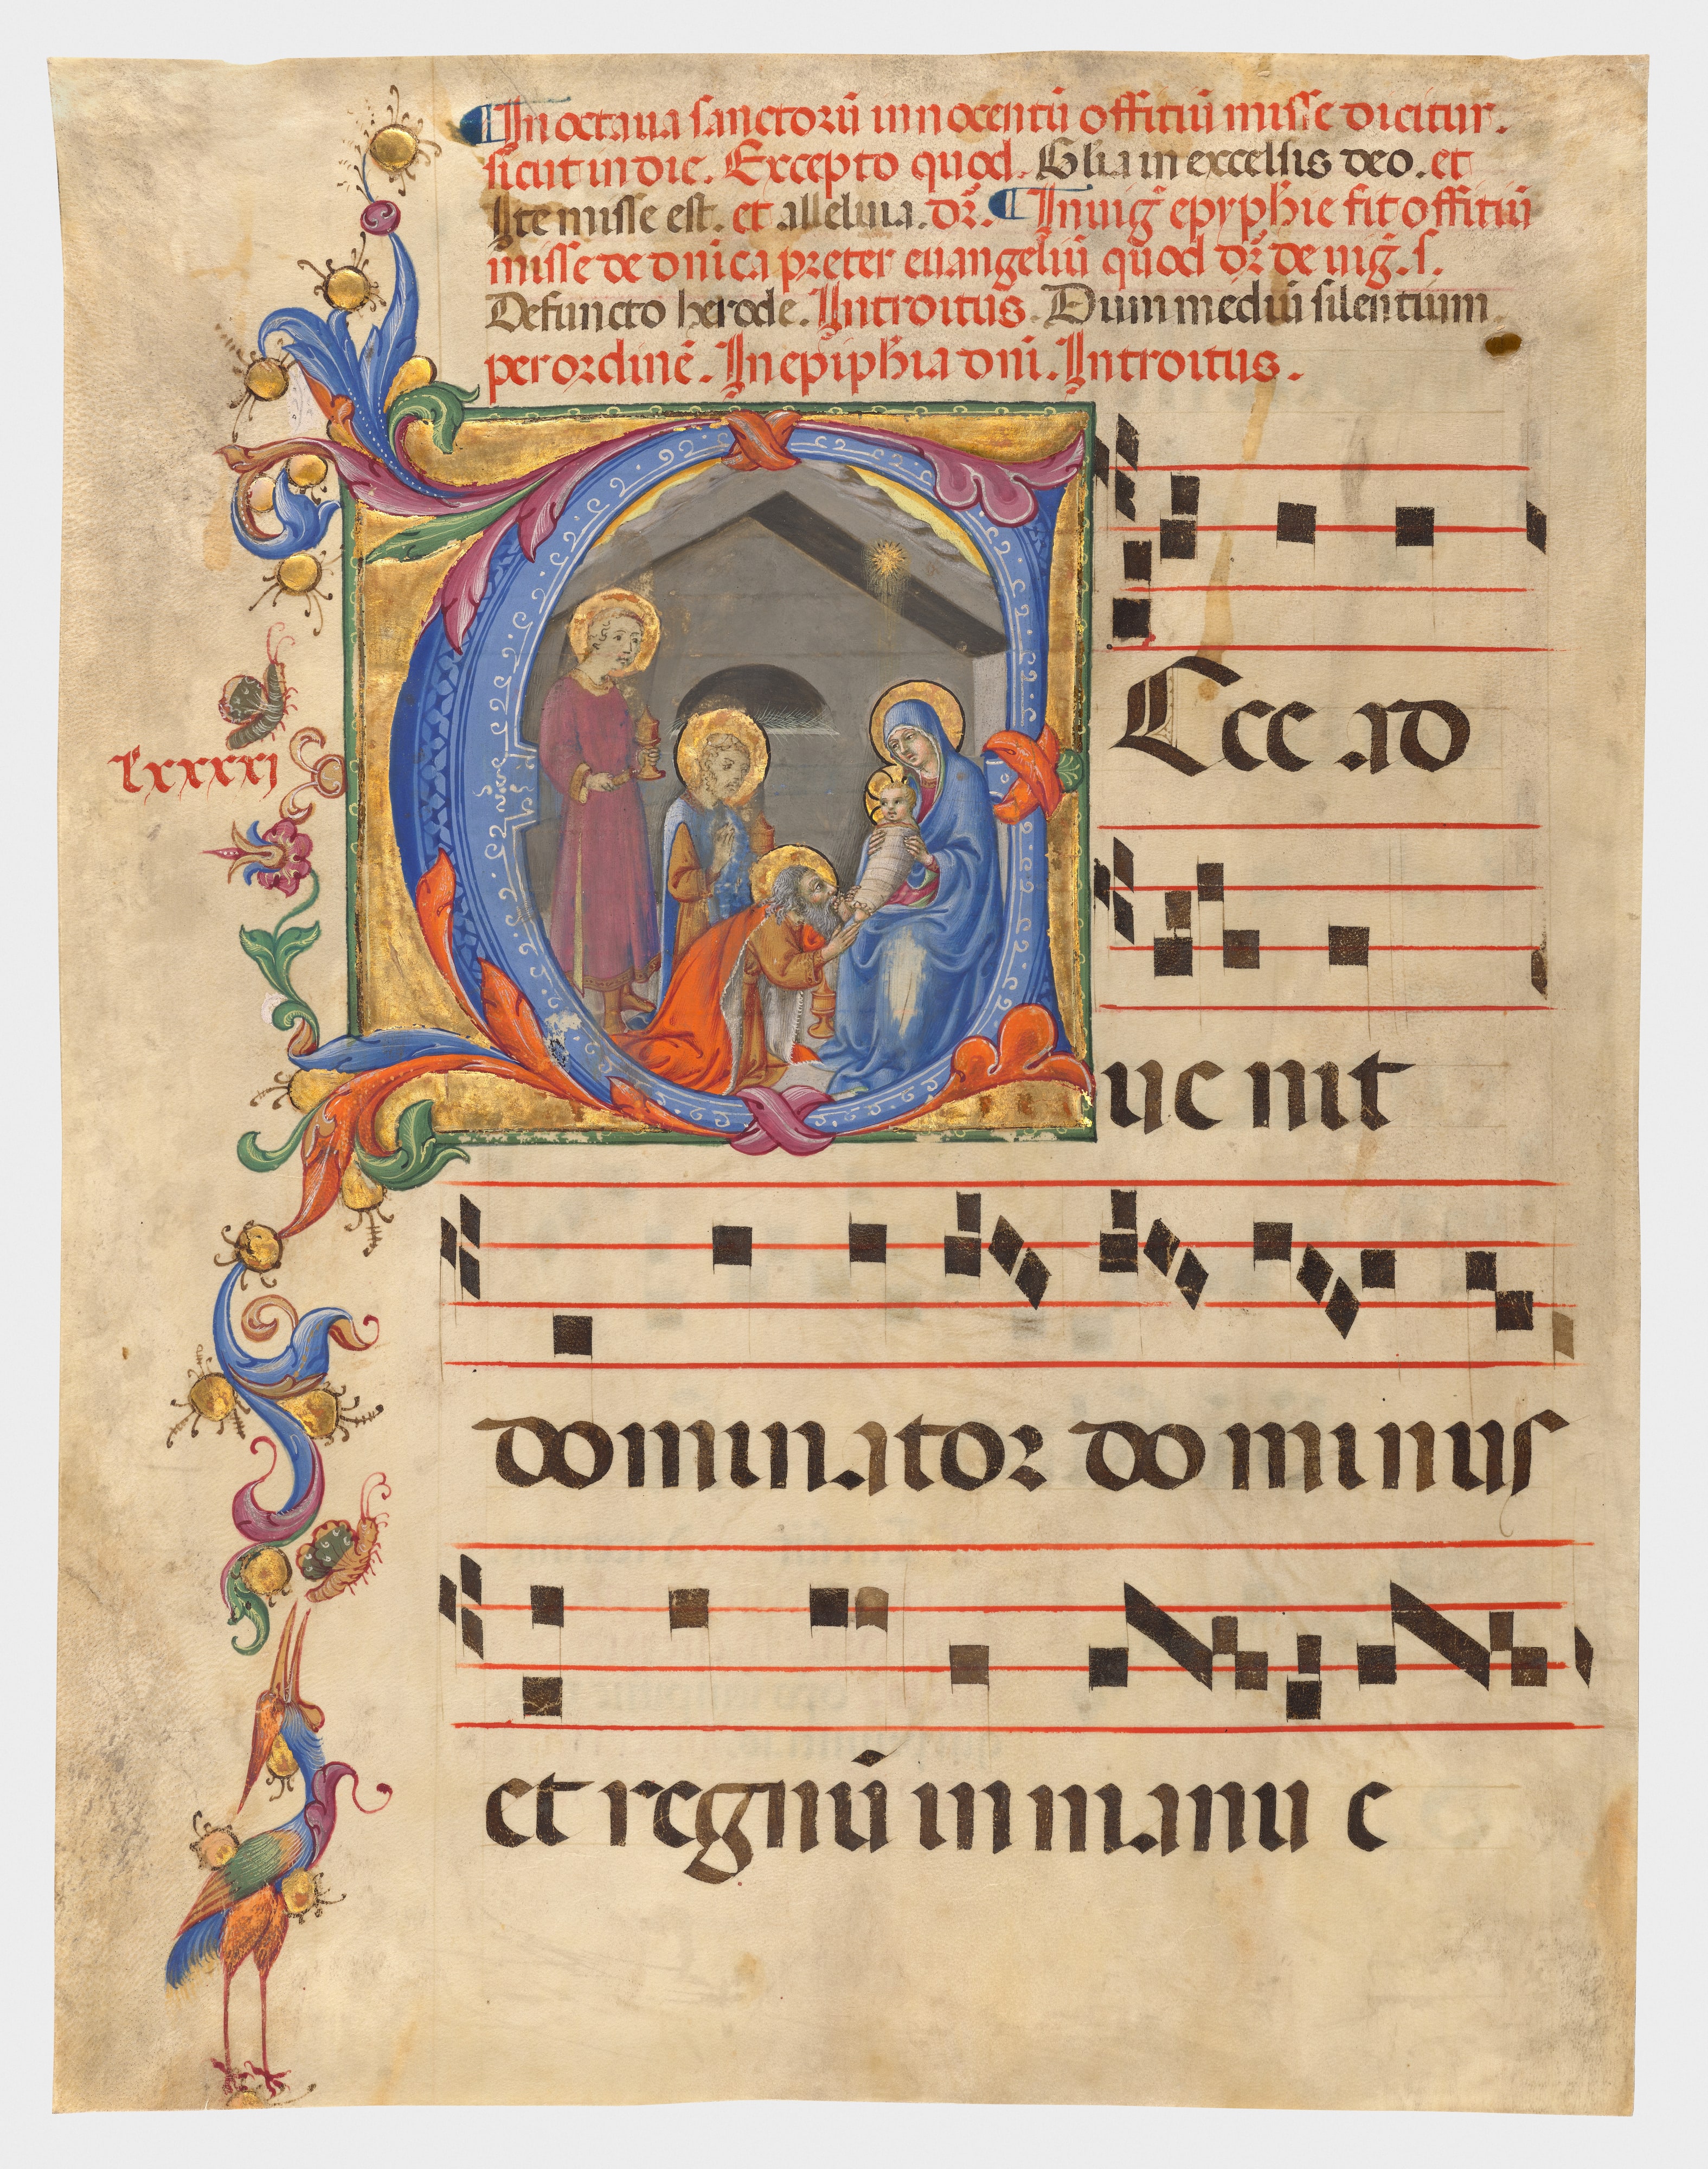 ¶ In octaua sanctorū innocentiū offitiū misse dicitur.
sicut in die. Excepto quod. Glīa in excelsis deo. et
Ite misse est. et alleluia. dr̄. ¶ In uiḡ epyphīe fit offitiū
misse de dn̄ica preter euangeliū quod dr̄ de uiḡ. s.
Defuncto herode. Introitus. Dum mediū silentium.
per ordinē. In epiphīa dn̄i. Introitus.
Ecce ad
lxxxxj
ue nit
dominator do minus
et regnū in manu e